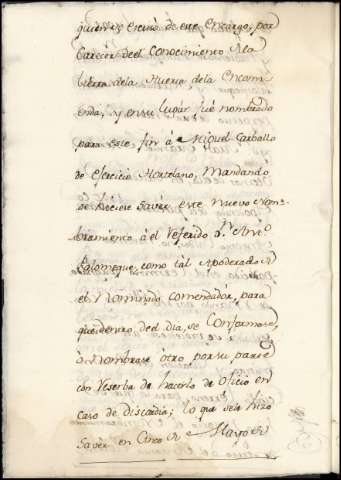 quien se escusó de este encargo, por
Carecer de el Conocimiento de la
tierra de la Huerta, de la Encom
enda, y en su lugar fué nombrado
para este fin á Miguel Carballo
de Exercicio Hortelano, Mandando
se hiciere saver este nuevo Nom-
bramiento á el referido Dn. Anto.
Palomeque, como tal Apoderado de
el Nominado Comendador, para
que dentro del dia, se Conformase,
ó Nombrase otro por su parte
con reserba de hacerlo de Oficio en
Caso de discordia; lo que se le hizo
Saver en Cinco de Mayo de